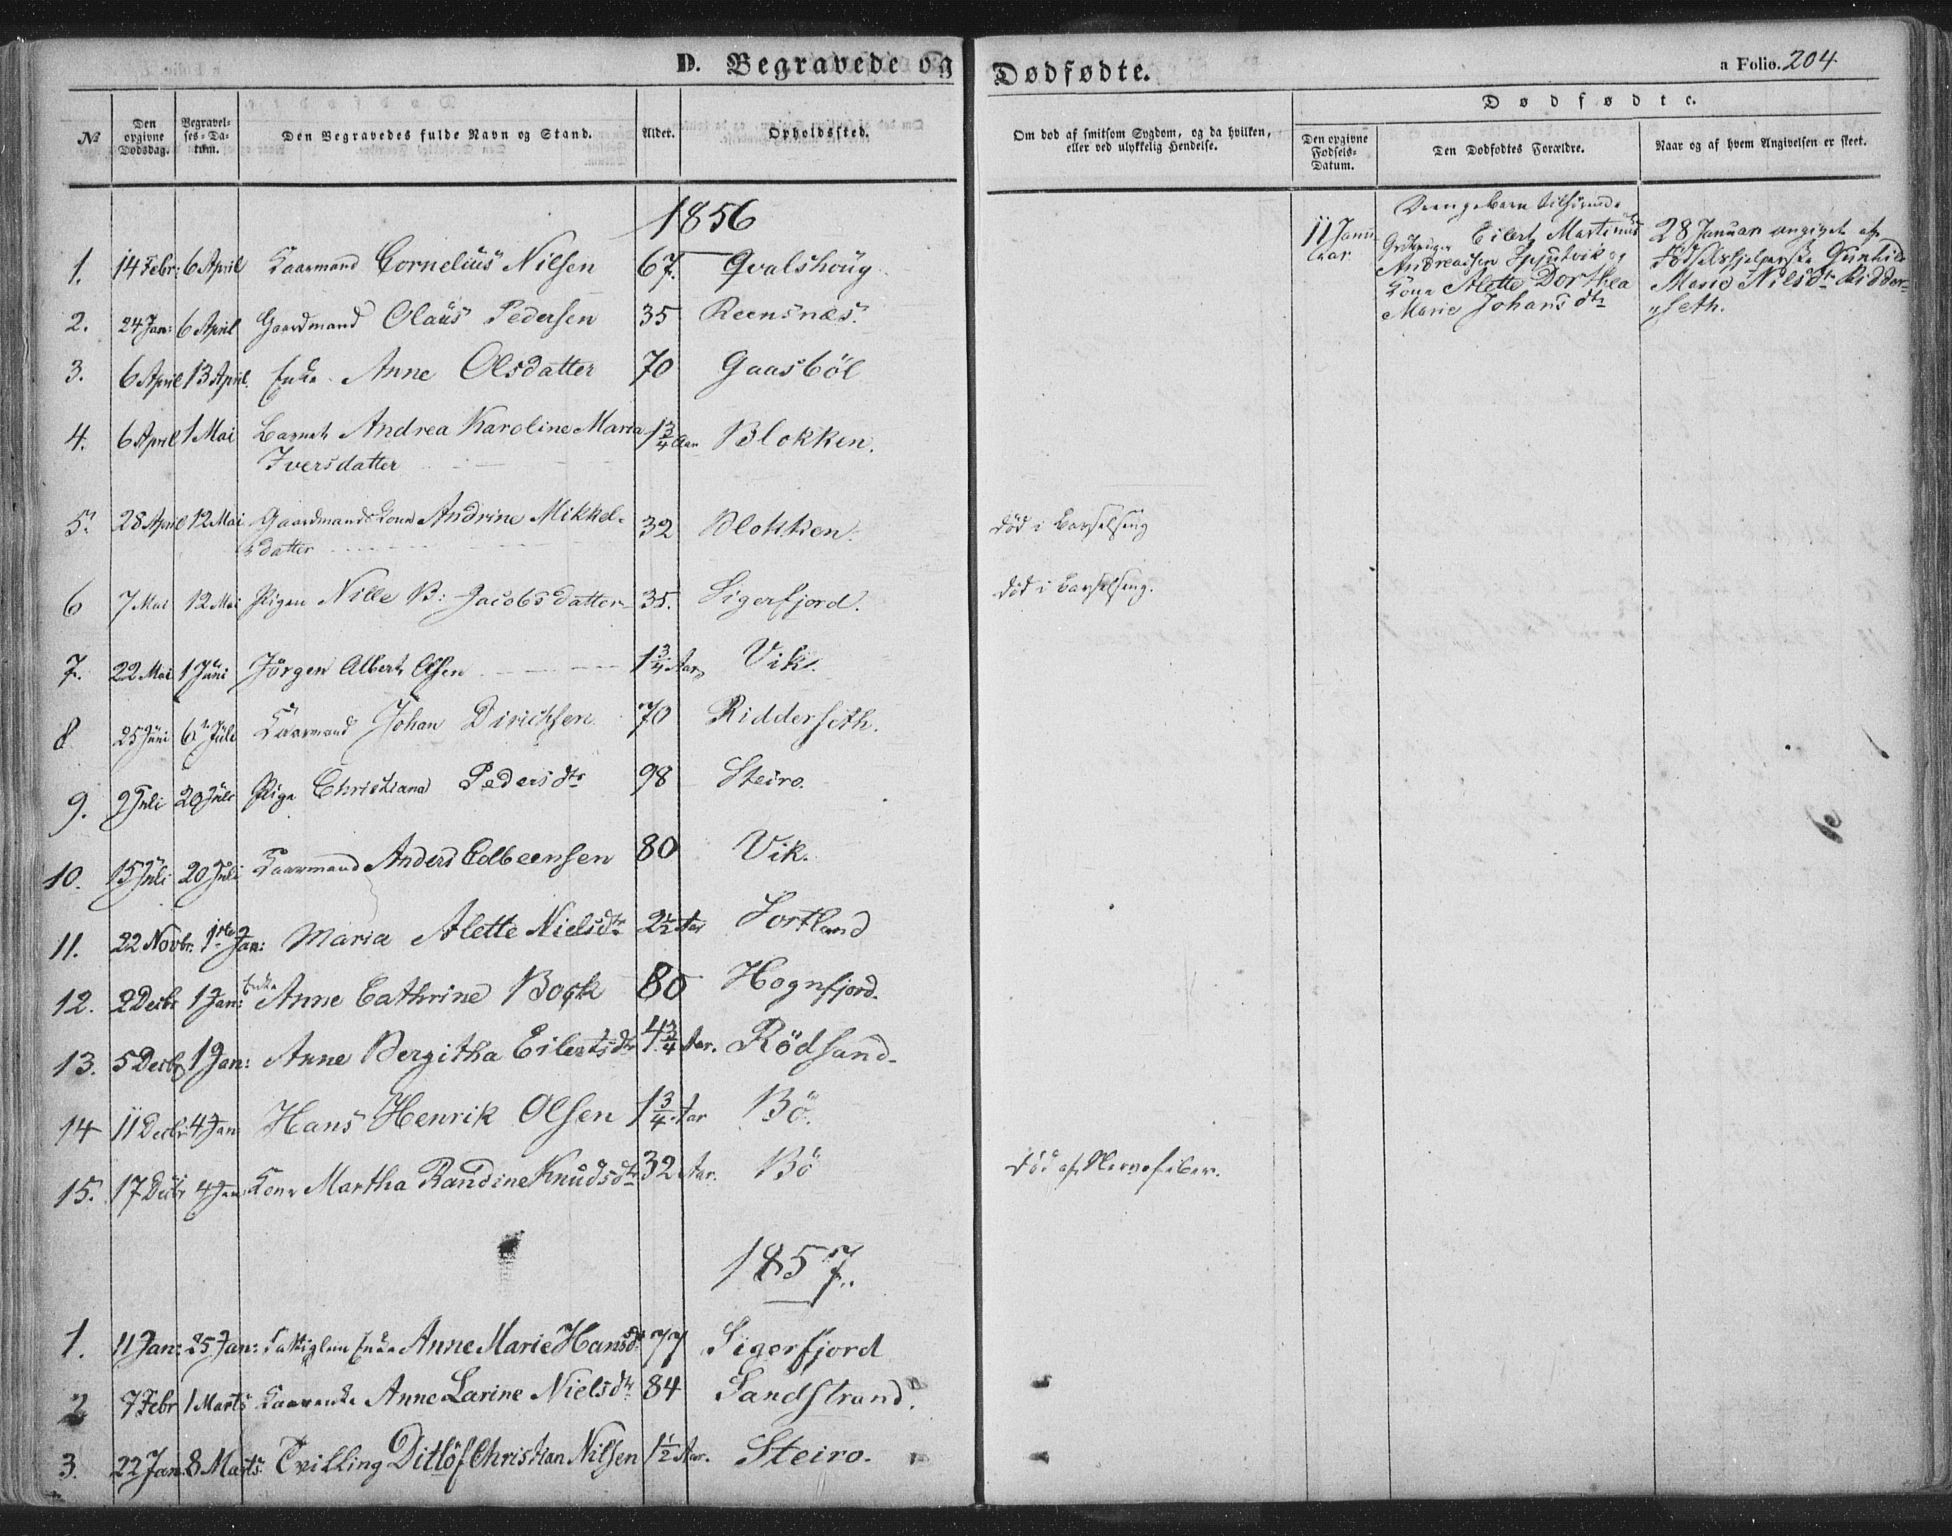 D. Begravede og Dødfødte.
a Folio. 204
Dødfødte.
№
Den opgivne Dødsdag.
Begravelses-Datum.
Den Begravedes fulde Navn og Stand.
Alder.
Opholdssted.
Om død af smitsom Sygdom, og da hvilken, eller ved ulykkelig Hendelse.
Den opgivne Fødsels-Datum.
Den Dødfødtes Forældre.
Naar og af hvem Angivelsen er skeet.
1856
11 Januar
Drengebarn
Eilert Martinus
Andreassen Spjutvik og
Kone Alette Dorthea
Marie Johansdtr
28 Januar angivet af
Fødselshjelperske Gunhild
Marie Nilsdtr Ridder-
seth.
1. 14 Febr: 6 April Kaarmand Cornelius Nilsen 67. Qvalshoug
2. 24 Jan: 6 April Gaardmand Olaus Pedersen 35 Reensnæs.
3. 6 April 13 April. Enke Anne Olsdatter 70 Gaasböl
4. 6 April 1 Mai Barnet Andrea Karoline Maria 1 3/4 Aar Blokken.
Iversdatter
5. 28 April 12 Mai Gaardmands Kone Andrine Mikkel- 32 Blokken. Död i Barselseng
sdatter
6 7 Mai 12 Mai Pigen Nille B: Jacobsdatter 35. Sigerfjord. Död i Barselseng.
7. 22 Mai 1 Juni Jörgen Albert Olsen 1 3/4 Aar Vik.
8 25 Juni 6 Juli Kaarmand Johan Dirichsen 70 Ridderseth.
9. 9 Juli 20 Juli Pige Christiana Pedersdtr 98 Steiro.
10. 15 Juli 20 Juli Kaarmand Anders Edbeensen 80 Vik.
11. 22 Novbr. 1ste Jan: Maria Alette Nielsdtr 2 1/2 Aar Sortland
12. 2 Decbr 1 Jan: Enke Anne Cathrine Bock 80 Hognfjord.
13. 5 Decbr 1 Jan: Anne Bergitha Eilertsdtr 4 3/4 Aar. Rödsand.
14 11 Decbr 4 Jan Hans Henrik Olsen 1 3/4 Aar Bö.
15. 17 Decbr 4 Jan Kone Martha Randine Knudsdtr 32 Aar. Bö Död af Nervefeber.
1857.
1. 11 Jan: 25 Jan: Fattiglem Enke Anne Marie Hansdtr 77 Sigerfjord
2 7 Febr 1 Marts Kaarenke Anne Larine Nielsdtr 84 Sandstrand.
3. 22 Jan: 8 Marts Tvilling Ditlöf Christian Nilsen 1 1/2 Aar. Steiro.